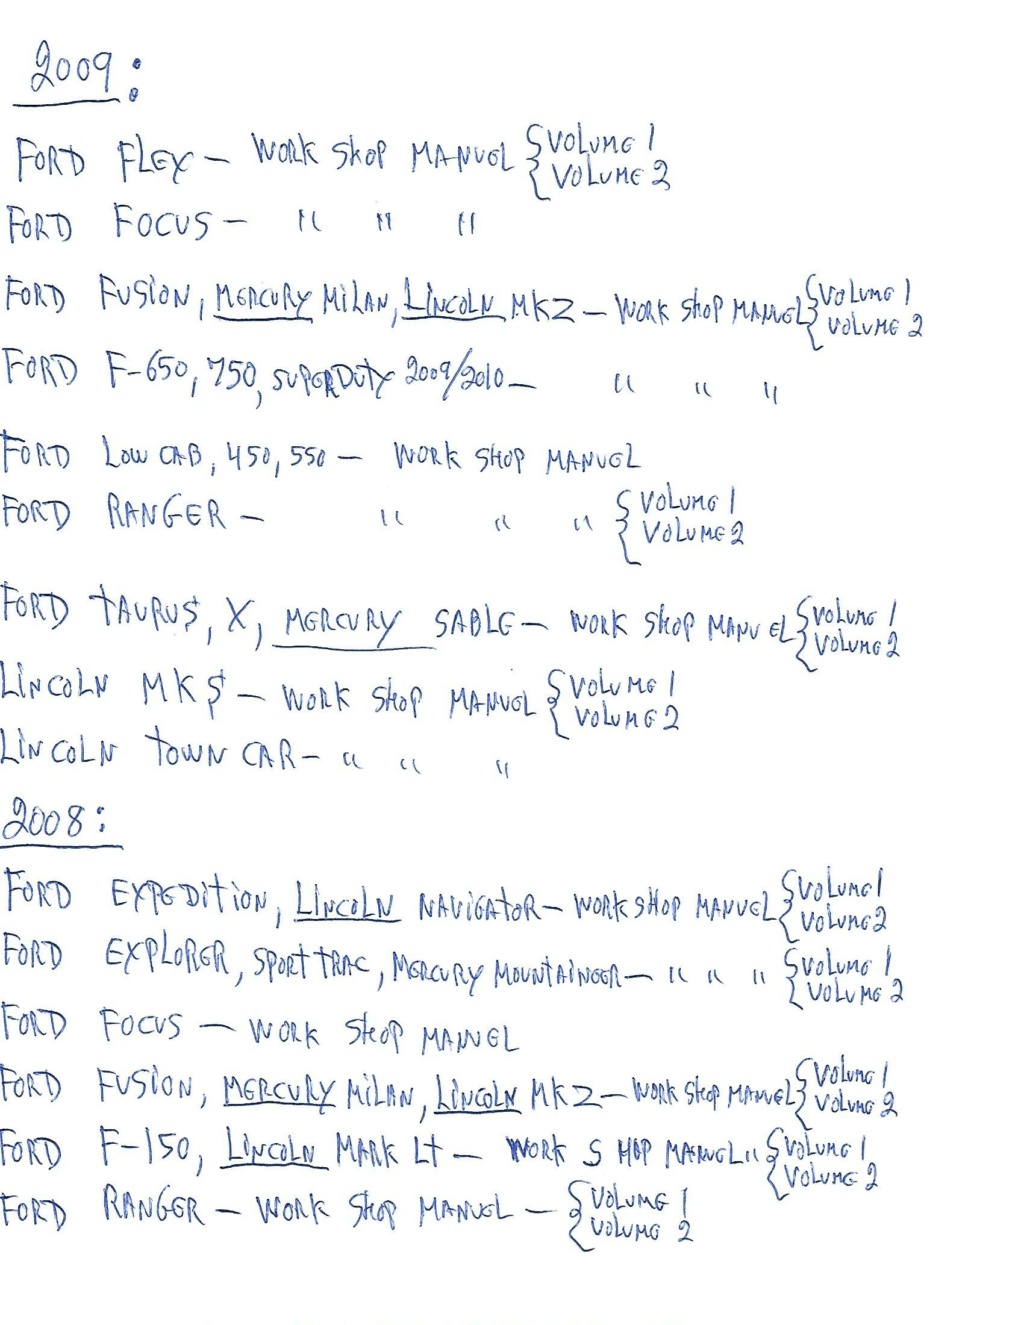 2009:
FORD FLEX - WORK SHOP MANUEL { VOLUME 1
VOLUME 2
FORD FOCUS - " " "
FORD FUSION, MERCURY MILAN, LINCOLN MKZ - WORK SHOP MANUEL { VOLUME 1
VOLUME 2
FORD F-650, 750, SUPERDUTY 2009/2010 - " " "
FORD LOW CAB, 450, 550 - WORK SHOP MANUEL
FORD RANGER - " " " { VOLUME 1
VOLUME 2
FORD TAURUS, X, MERCURY SABLE - WORK SHOP MANUEL { VOLUME 1
VOLUME 2
LINCOLN MKS - WORK SHOP MANUEL { VOLUME 1
VOLUME 2
LINCOLN TOWN CAR - " " "
2008:
FORD EXPEDITION, LINCOLN NAVIGATOR - WORK SHOP MANUEL { VOLUME 1
VOLUME 2
FORD EXPLORER, SPORT TRAC, MERCURY MOUNTAINEER - " " " { VOLUME 1
VOLUME 2
FORD FOCUS - WORK SHOP MANUEL
FORD FUSION, MERCURY MILAN, LINCOLN MKZ - WORK SHOP MANUEL { VOLUME 1
VOLUME 2
FORD F-150, LINCOLN MARK LT - WORK SHOP MANUEL " { VOLUME 1
VOLUME 2
FORD RANGER - WORK SHOP MANUEL - { VOLUME 1
VOLUME 2